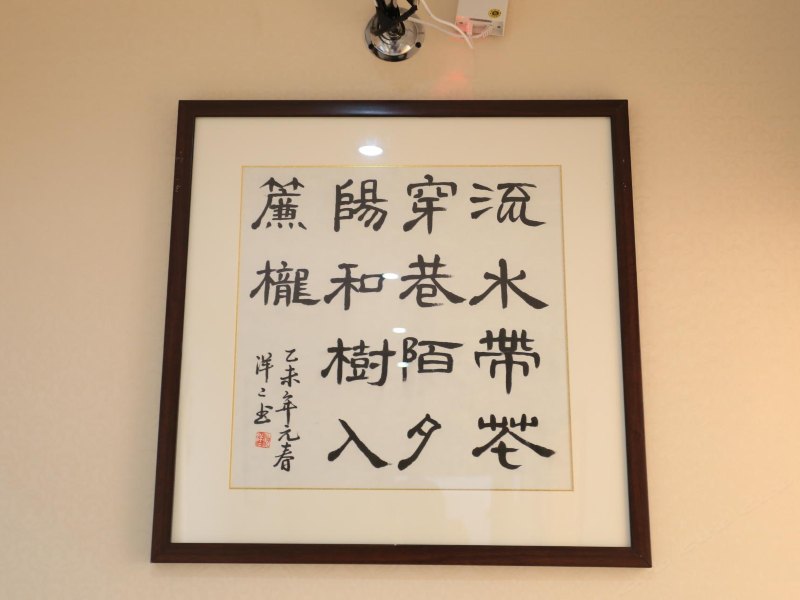 流水帶花
穿巷陌夕
陽和樹入
簾櫳
乙未年元春
洋之书